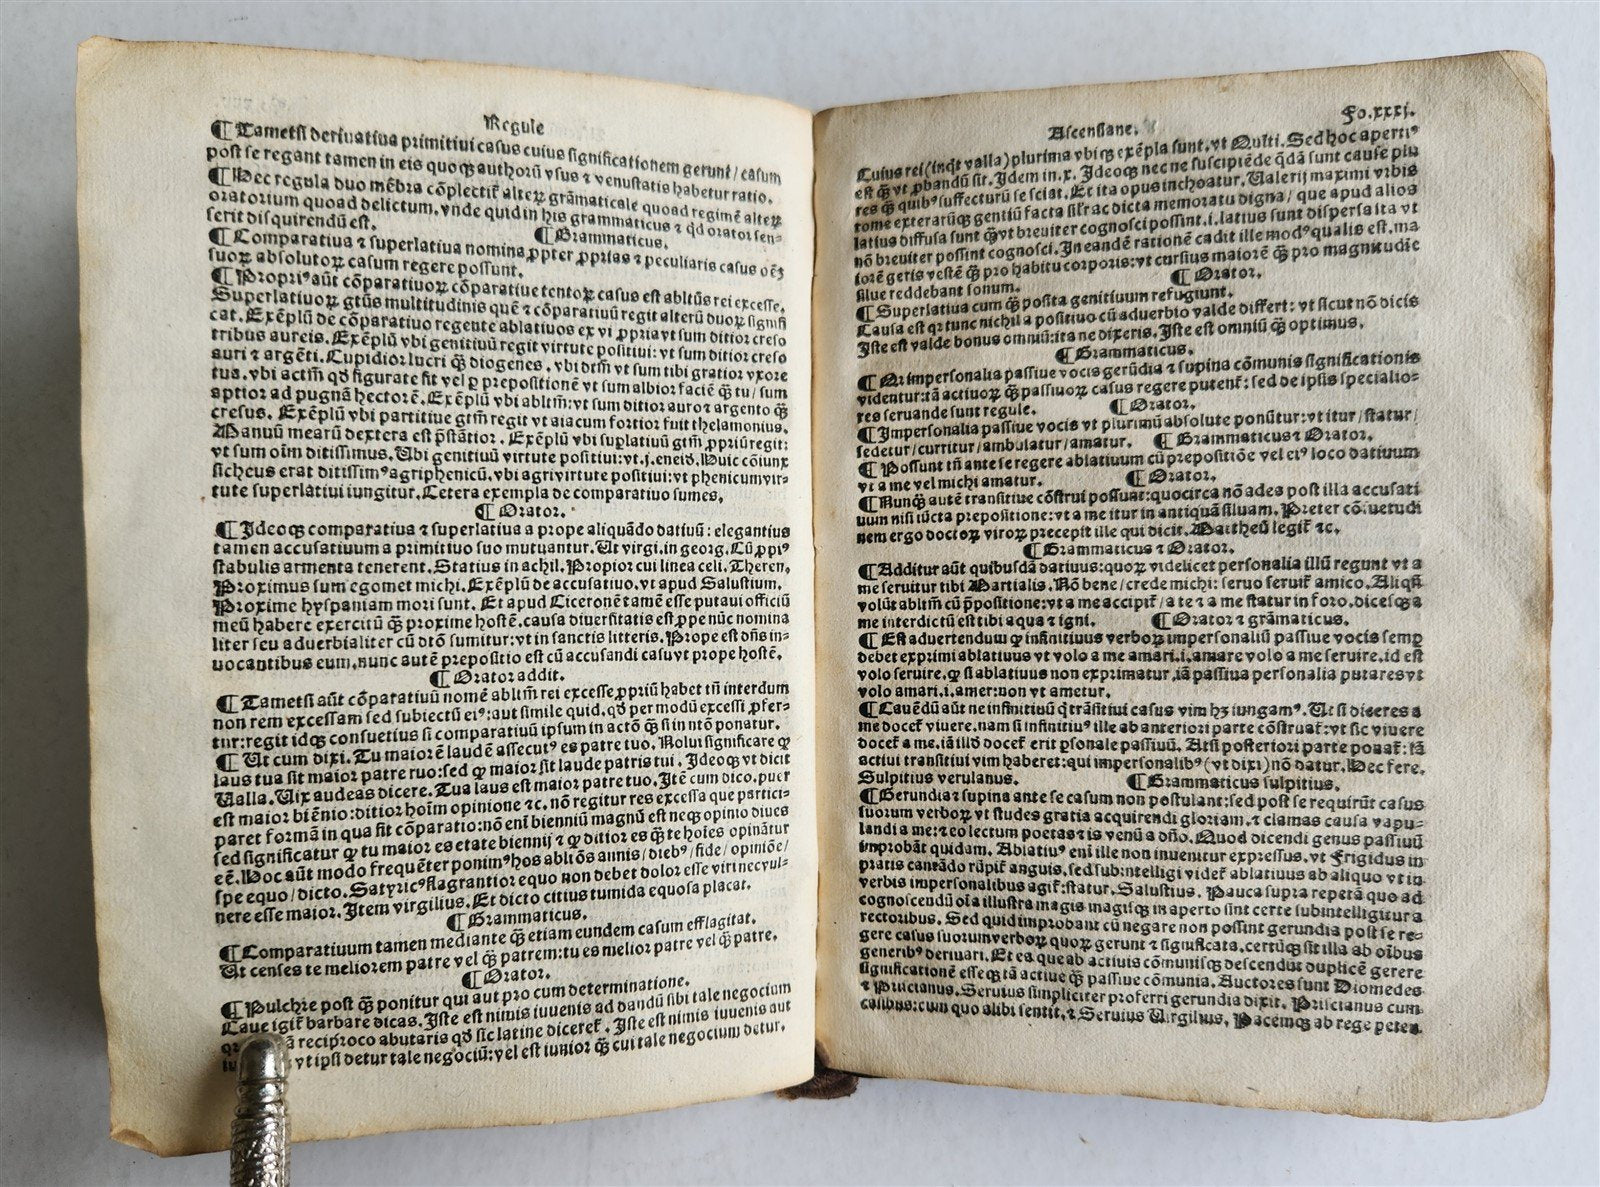 Regule
¶ Tametsi deriuatiua primitiui casus cuius significationem gerunt / casum
post se regant tamen in eis quoqȝ authorū vsus ⁊ venustatis habetur ratio.
¶ Hec regula duo mēbra cōplectit᷑ alterꝝ grāmaticale quoad regimē alterꝝ
oratorium quoad delictum, vnde quid in his grammaticus ⁊ qd orator sen-
serit disquirendū est. ¶ Grammaticus.
¶ Comparatiua ⁊ superlatiua nomina ꝓpter ꝓprias ⁊ peculiaris casus oēȝ
suoꝝ absolutoꝝ casum regere possunt.
¶ Propriꝰ aūt cōparatiuoꝝ cōparatiue tentoꝝ casus est abltūs rei excesse.
Superlatiuoꝝ gtūs multitudinis quē ⁊ cōparatiuū regit alterū duoꝝ signifi
cat. Exēplū de cōparatiuo regente ablatiuos ex vi ꝓpria vt sum ditior creso
tribus aureis. Exēplū vbi genitiuū regit virtute positiui: vt sum ditior creso
auri ⁊ argēti. Cupidior lucri q̄ȝ diogenes. vbi dtm̄ vt sum tibi gratior vxore
tua. vbi actm̄ qd̄ figurate fit vel ꝑ prepositionē vt sum albior faciē q̄ȝ tu / sum
aptior ad pugnā hectorē. Exēplū vbi abltm̄: vt sum ditior auro ⁊ argento q̄ȝ
cresus. Exēplū vbi partitiue gtm̄ regit vt aiacum fortior fuit thelamonius.
Manuū mearū dextera est p̄stātior. Exēplū vbi suplatiuū gtm̄ ꝓpriū regit:
vt sum oīm ditissimus. Ubi genitiuū virtute positiui: vt. j. eneid. Huic cōiunx
sicheus erat ditissimꝰ agri phenicū. vbi agri virtute positiui: vt phenicum vir-
tute superlatiui iungitur. Cetera exempla de comparatiuo sumes.
¶ Orator.
¶ Ideoqȝ comparatiua ⁊ superlatiua a prope aliquādo datiuū: elegantius
tamen accusatiuum a primitiuo suo mutuantur. Ut virgi. in georg. Cū ꝓpiꝰ
stabulis armenta tenerent. Statius in achil. Propior cui linea celi. Theren.
Proximus sum egomet michi. Exēplū de accusatiuo. vt apud Salustium.
Proxime hyspaniam mori sunt. Et apud Ciceronē tamē esse putaui officiū
meū habere exercitū q̄ȝ proxime hostē. causa diuersitatis est ꝓpe nūc nomina
liter seu aduerbialiter cū dtō sumitur: vt in sanctis litteris. Prope est dn̄s in-
uocantibus eum. nunc autē prepositio est cū accusandi casu vt prope hostē.
¶ Orator addit.
¶ Tametsi aūt cōparatiuū nomē abltm̄ rei excesse ꝓpriū habet tn̄ interdum
non rem excessam sed subiectū eiꝰ: aut simile quid. qd̄ per modū excessi ꝓfer-
tur: regit idqȝ consuetius si comparatiuū ipsum in actō q̄ȝ si in ntō ponatur.
¶ Ut cum dixi. Tu maiorē laudē assecutꝰ es patre tuo. Nolui significare ꝙ
laus tua sit maior patre tuo: sed ꝙ maior sit laude patris tui. Ideoqȝ vt dicit
Ualla. Uix audeas dicere. Tua laus est maior patre tuo. Itē cum dico. puer
est maior biēnio: ditior hoīm opinione ⁊c. nō regitur res excessa que partici-
paret formā in qua fit cōparatio: nō enī bienniū magnū est neqȝ opinio diues
sed significatur ꝙ tu maior es etate biennij ⁊ ꝙ ditior es q̄ȝ te hoīes opinātur
eē. Hoc aūt modo frequēter ponimꝰ hos abltōs annis / diebꝰ / fide / opiniōe /
spe equo / dicto. Satyricꝰ flagrantior equo non debet dolor esse viri nec vul-
nere esse maior. Item virgilius. Et dicto citius tumida equora placat.
¶ Grammaticus.
¶ Comparatiuum tamen mediante q̄ȝ etiam eundem casum efflagitat.
Ut censes te meliorem patre vel q̄ȝ patrem: tu es melior patre vel q̄ȝ patre.
¶ Orator.
¶ Pulchre post q̄ȝ ponitur qui aut pro cum determinatione.
Caue igit᷑ barbare dicas. Iste est nimis iuuenis ad dandū sibi tale negocium
ā reciproco abutaris qd̄ sic latine diceret᷑. Iste est nimis iuuenis aut
vt ipsi detur tale negociū: vel est iunior q̄ȝ cui tale negocium detur.
Ascensiane. Fo. xxxj.
Cuius rei (inq̄t valla) plurima vbiqȝ exēpla sunt. vt Multi. Sed hoc apertiꝰ
est q̄ȝ vt ꝓbandū sit. Idem in. x. Ideoqȝ nec ne suscipiēde q̄dā sunt cause plu
res q̄ȝ quibꝰ suffecturū se sciat. Et ita opus inchoatur. Ualerij maximi vrbis
rome exterarūqȝ gentiū facta sil̄r ac dicta memoratu digna / que apud alios
latius diffusa sunt q̄ȝ vt breuiter cognosci possint. i. latius sunt dispersa ita vt
nō breuiter possint cognosci. In eandē rationē cadit ille modꝰ qualis est. ma
iorē geris vestē q̄ȝ pro habitu corporis: vt cursius maiorē q̄ȝ pro magnitudīe
silue reddebant sonum. ¶ Orator.
¶ Superlatiua cum q̄ȝ posita genitiuum refugiunt.
Causa est qꝛ tunc nichil a positiuo cū aduerbio valde differt: vt sicut nō dicis
Iste est valde bonus omniū: ita ne dixeris. Iste est omniū q̄ȝ optimus.
¶ Grammaticus.
¶ Qr impersonalia passiue vocis gerūdia ⁊ supina cōmunis significationis
videntur: tā actiuoꝝ q̄ȝ passiuoꝝ casus regere putent᷑: sed de ipsis specialio-
res seruande sunt regule. ¶ Orator.
¶ Impersonalia passiue vocis vt plurimū absolute ponūtur: vt itur / statur /
sedetur / curritur / ambulatur / amatur. ¶ Grammaticus ⁊ Orator.
¶ Possunt tn̄ ante se regere ablatiuum cū prepositiōe vel eiꝰ loco datiuum
vt a me vel michi amatur. ¶ Orator.
¶ Nunqȝ autē transitiue cōstrui possunt: quocirca nō ades post illa accusati
uum nisi iūcta prepositione: vt a me itur in antiquā siluam. Preter cōsuetudi
nem ergo doctoꝝ viroꝝ precepit ille qui dicit. Mattheū legit᷑ ⁊c.
¶ Grammaticus ⁊ Orator.
¶ Additur aūt quibusdā datiuus: quoꝝ videlicet personalia illū regunt vt a
me seruitur tibi Martialis. Nō bene / crede michi: seruo seruit᷑ amico. Aliqn̄
volūt abltm̄ cū p̄positione: vt a me accipit᷑ / a te ⁊ a me statur in foro. dicesqȝ a
me interdictū est tibi aqua ⁊ igni. ¶ Orator ⁊ grāmaticus.
¶ Est aduertendum ꝙ infinitiuus verboꝝ impersonaliū passiue vocis semꝑ
debet exprimi ablatiuus vt volo a me amari. i. amare volo a me seruire. id est
volo seruire. ꝙ si ablatiuus non exprimatur. iā passiua personalia putares vt
volo amari. i. amer: non vt ametur.
¶ Cauēdū aūt ne infinitiuū q̄ trāsitiui casus vim hȝ iungamꝰ. Ut si diceres a
me docet᷑ viuere. nam si infinitiuꝰ ille ab anteriori parte cōstruat᷑: vt sic viuere
docet᷑ a me. iā illd̄ docet᷑ erit ꝑsonale passiuū. At si posteriori parte ponat᷑: iā
actiui transitiui vim haberet: qui impersonalibꝰ (vt dixi) nō datur. Hec fere.
Sulpitius verulanus. ¶ Grammaticus sulpitius.
¶ Gerundia ⁊ supina ante se casum non postulant: sed post se requirūt casus
suorum verboꝝ vt studes gratia acquirendi gloriam. ⁊ clamas causa vapu-
landi a me: ⁊ eo lectum poetas ⁊ is venū a dn̄o. Quod dicendi genus passiuū
improbāt quidam. Ablatiuꝰ enī ille non inuenitur expressus. vt Frigidus in
pratis cantādo rūpit᷑ anguis. sed subintelligi videt᷑ ablatiuus ab aliquo vt in
verbis impersonalibus agit᷑: statur. Salustius. Pauca supra repetā quo ad
cognoscendū oīa illustra magis magisqȝ in aperto sint certe subintelligitur a
rectoribus. Sed quid improbant cū negare non possint gerundia post se re-
gere casus suorum verboꝝ quoꝝ gerunt ⁊ significata. certūqȝ sit illa ab oībus
generibꝰ deriuari. Et ea que ab actiuis cōmunisqȝ descendūt duplicē gerere
significationē esseqȝ tā actiue q̄ȝ passiue cōmunia. Auctores sunt Diomedes
⁊ Priscianus. Seruius simpliciter proferri gerundia dixit. Priscianus cum
casibus: cum quo alibi sentit. ⁊ Seruius Uirgilius. Pacemqȝ ab rege peten.